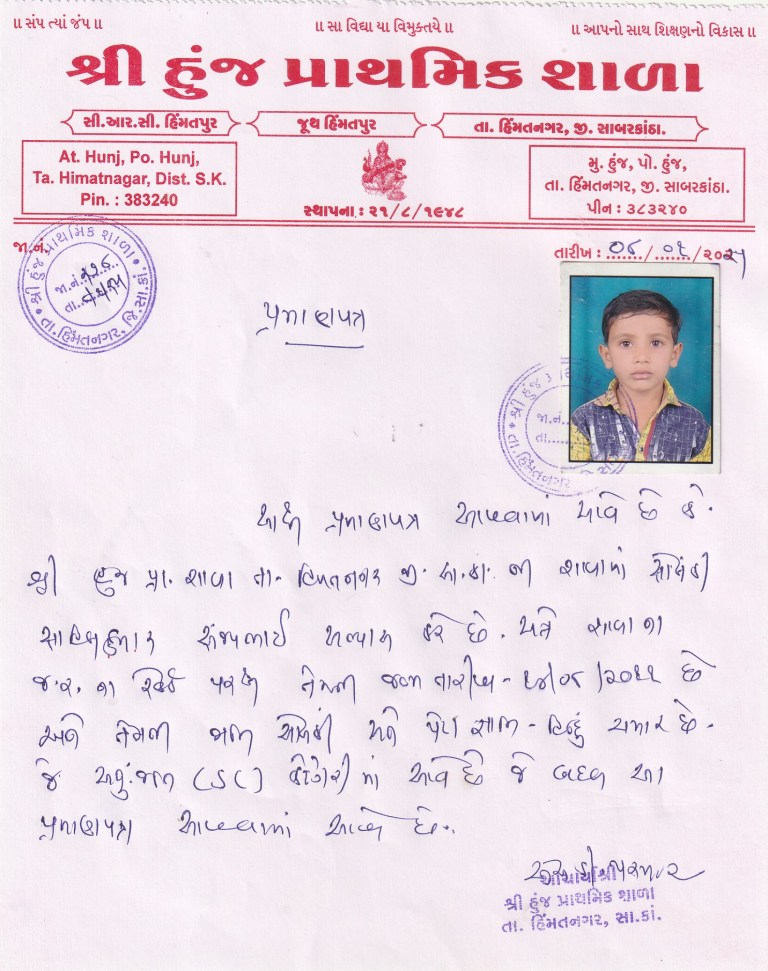 ॥ સંપ ત્યાં જંપ ॥
॥ સા વિદ્યા યા વિમુક્તયે ॥
॥ આપનો સાથ શિક્ષણનો વિકાસ ॥
શ્રી હુંજ પ્રાથમિક શાળા
સી.આર.સી. હિંમતપુર
જૂથ હિંમતપુર
તા. હિંમતનગર, જી. સાબરકાંઠા.
At. Hunj, Po. Hunj,
Ta. Himatnagar, Dist. S.K.
Pin. : 383240
સ્થાપના : ૨૧/૮/૧૯૪૮
મુ. હુંજ, પો. હુંજ,
તા. હિંમતનગર, જી. સાબરકાંઠા.
પીન : ૩૮૩૨૪૦
જા.નં.
તારીખ :
શ્રી હુંજ પ્રાથમિક શાળા
જા.નં.
તા.
તા. હિંમતનગર, જિ. સા.કાં.
પ્રમાણપત્ર
શ્રી હુંજ
જા.નં.
તા.
તા. હિંમતનગર
આથી પ્રમાણપત્ર આપવામાં આવે છે કે.
શ્રી હુંજ પ્રા. શાળા તા. હિંમતનગર જી. સા.કાં. ની શાળામાં સોલંકી
અભ્યાસ કરે છે. અને શાળાના
જ.ર. ના રેકર્ડ પરથી તેમની જન્મ તારીખ - /૨૦૧૧ છે
અને તેમની જાતિ સોલંકી અને પેટા જાતિ - હિન્દુ ચમાર છે.
જે અનુ.જાતિ (SC) કેટેગરીમાં આવે છે જે બદલ આ
પ્રમાણપત્ર આપવામાં આવે છે.
આચાર્યશ્રી
શ્રી હુંજ પ્રાથમિક શાળા
તા. હિંમતનગર, સા.કાં.